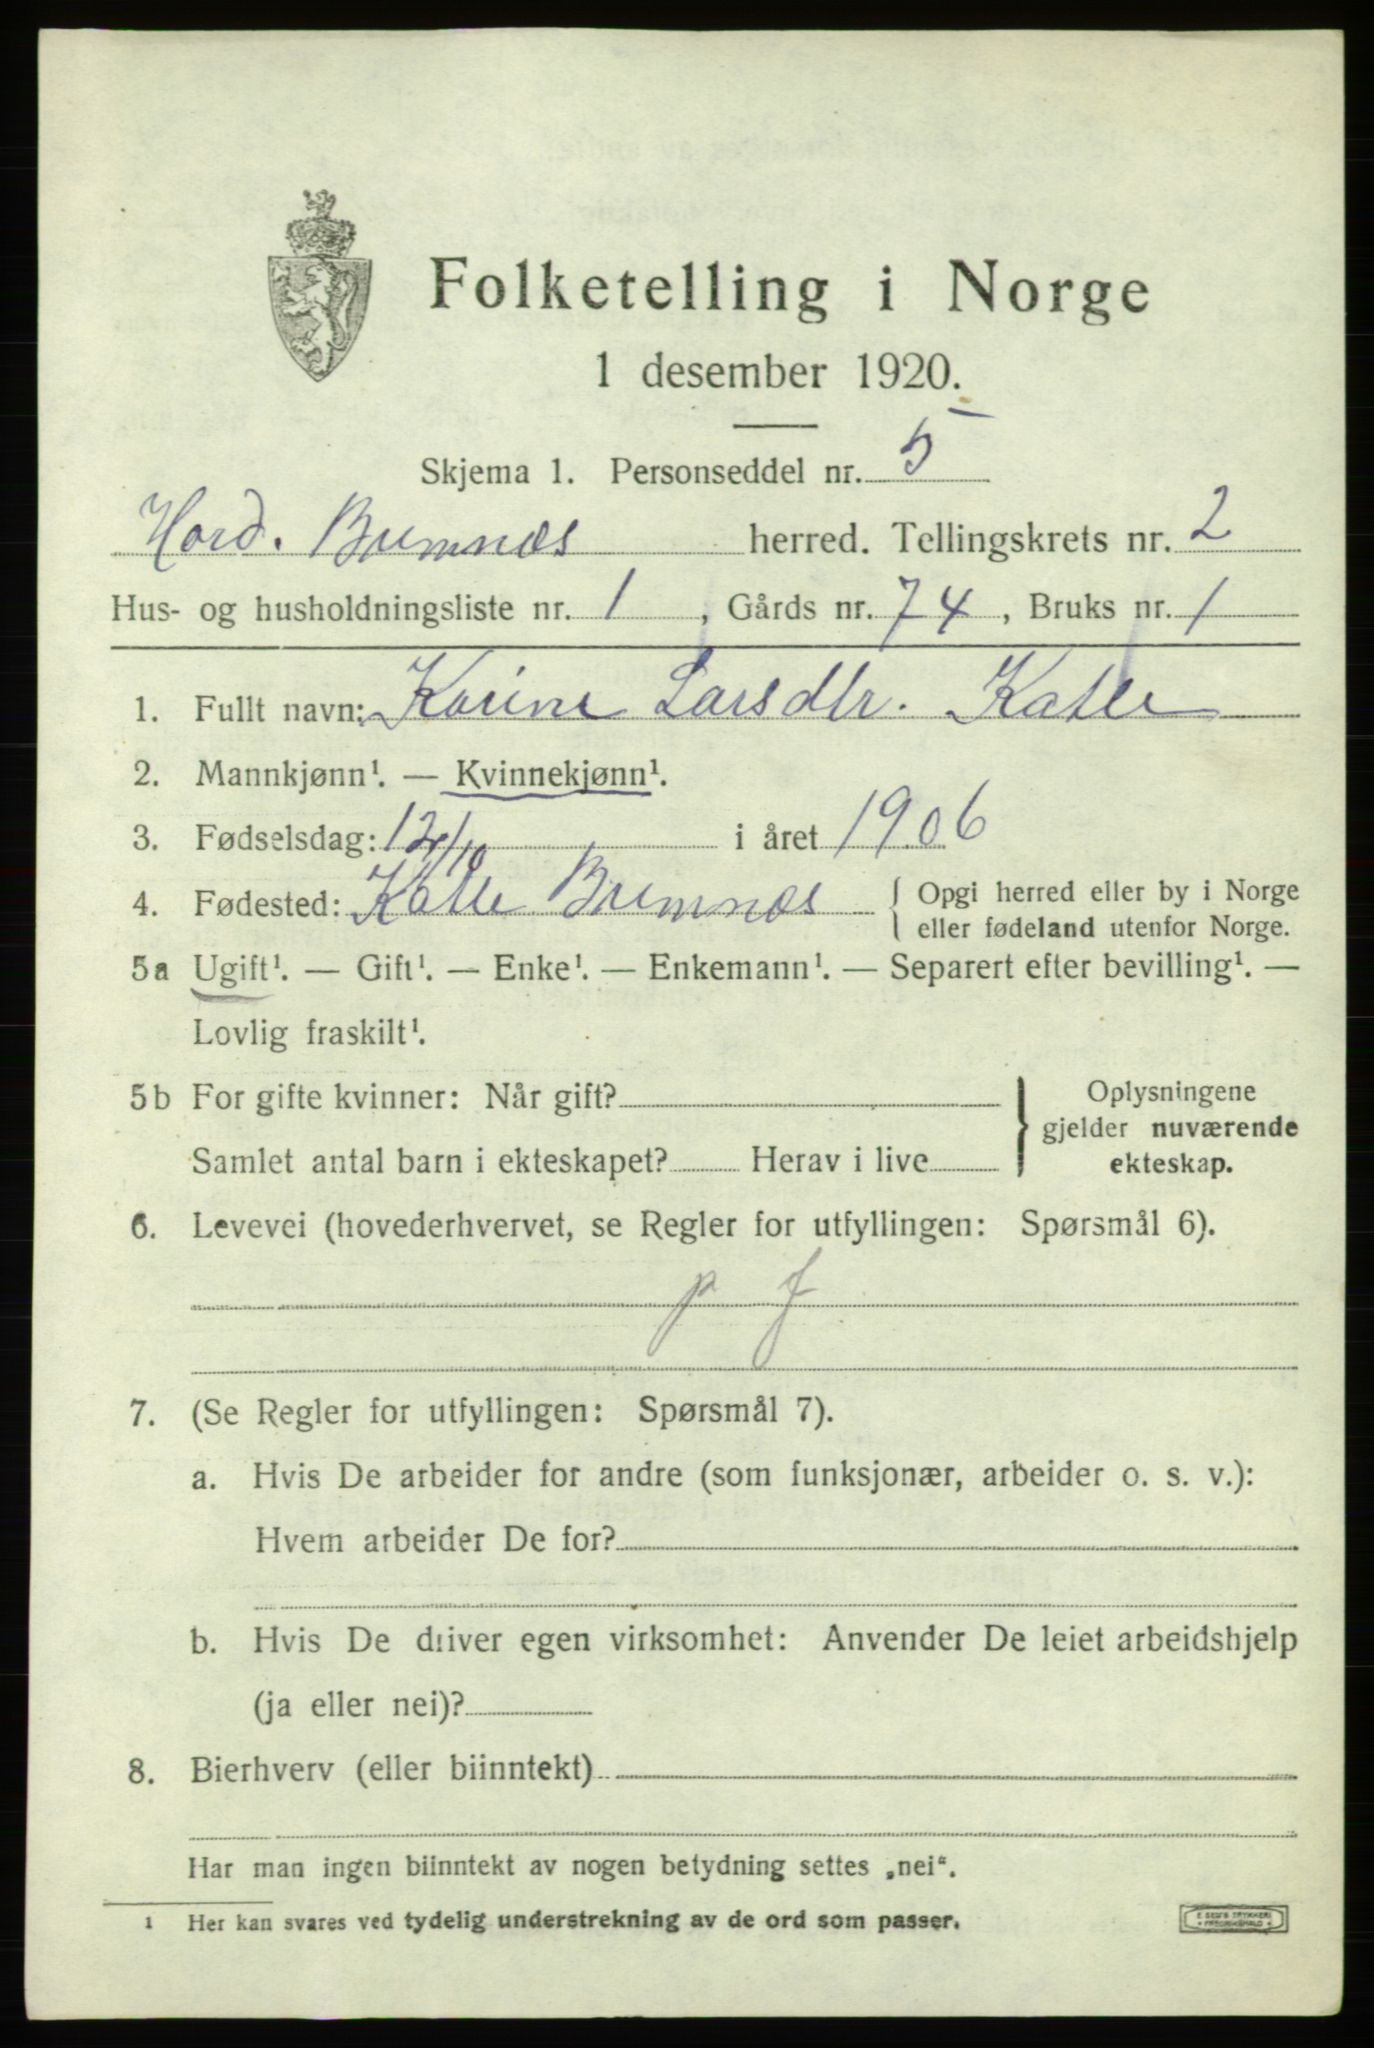 Folketelling i Norge
1 desember 1920.
Skjema 1. Personseddel nr. 5
Hord. Bremnæs herred. Tellingskrets nr. 2
Hus- og husholdningsliste nr. 1, Gårds nr. 74, Bruks nr. 1
1. Fullt navn: Karine Larsdtr. Katle
2. Mannkjønn¹. — Kvinnekjønn¹.
3. Fødselsdag: 12/10 i året 1906
4. Fødested: Katle Bremnæs { Opgi herred eller by i Norge
eller fødeland utenfor Norge.
5a Ugift¹. — Gift¹. — Enke¹. — Enkemann¹. — Separert efter bevilling¹. —
Lovlig fraskilt¹.
5b For gifte kvinner: Når gift?
Samlet antal barn i ekteskapet? Herav i live
} Oplysningene
gjelder nuværende
ekteskap.
6. Levevei (hovederhvervet, se Regler for utfyllingen: Spørsmål 6).
p f
7. (Se Regler for utfyllingen: Spørsmål 7).
a. Hvis De arbeider for andre (som funksjonær, arbeider o. s. v.):
Hvem arbeider De for?
b. Hvis De driver egen virksomhet: Anvender De leiet arbeidshjelp
(ja eller nei)?
8. Bierhverv (eller biinntekt)
Har man ingen biinntekt av nogen betydning settes „nei“.
¹ Her kan svares ved tydelig understrekning av de ord som passer.
E. SEM'S TRYKKERI
FREDRIKSHALD